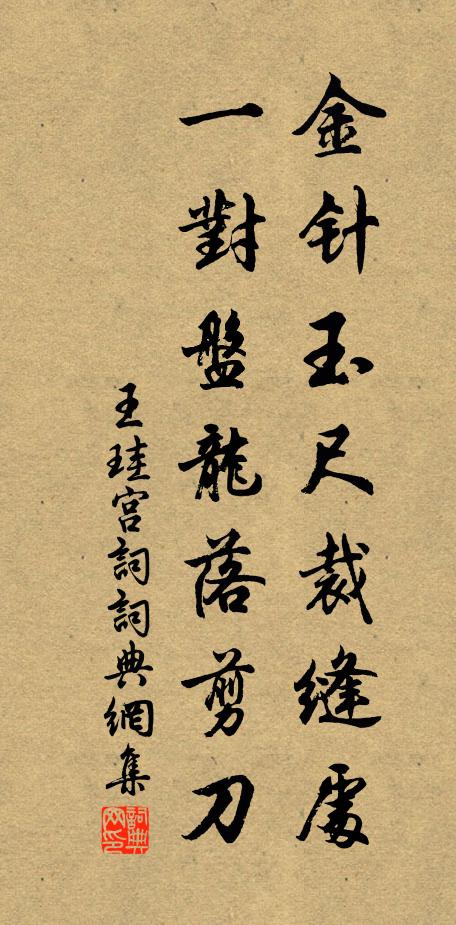 金针玉尺裁缝處
一對盤龍落剪刀
王珪宫詞詞典網集
詞典网印